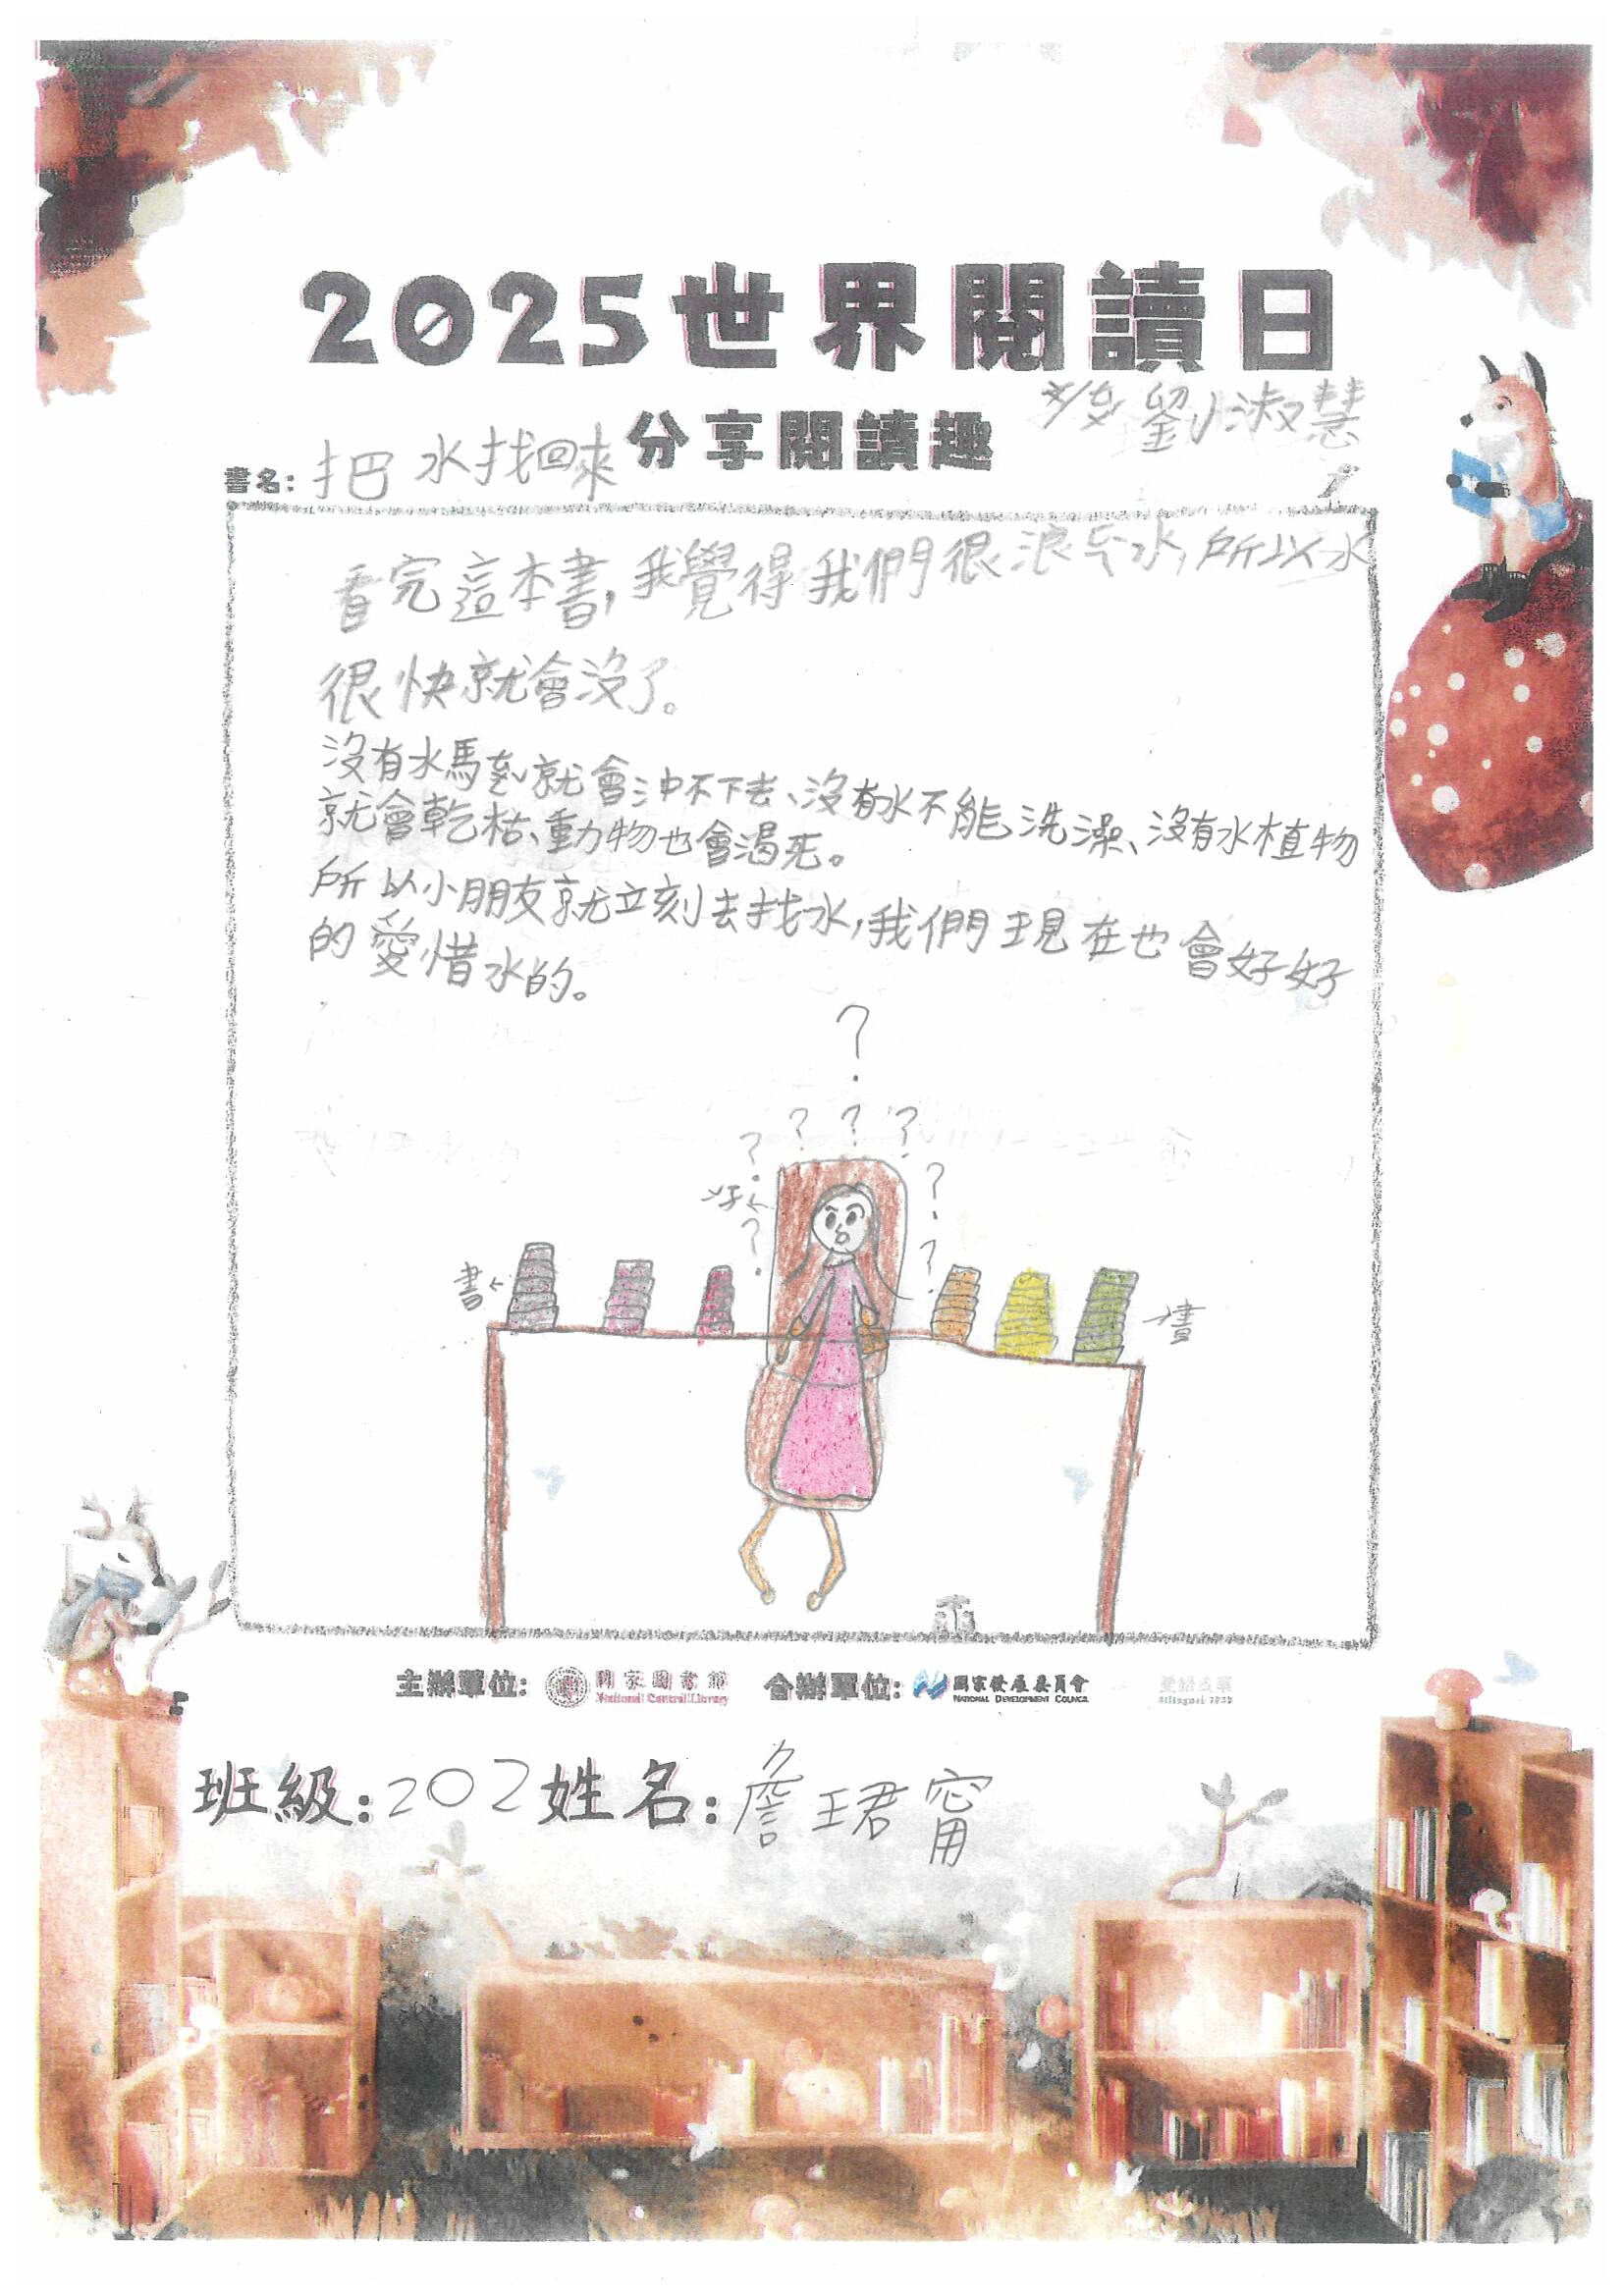 2025世界閱讀日
分享閱讀趣
劉淑慧
書名:把水找回來
看完這本書,我覺得我們很浪ㄈㄟˋ水,所以水
很快就會沒了。
沒有水馬ㄊㄨㄥˇ就會沖不下去、沒有水不能洗澡、沒有水植物
就會乾枯、動物也會渴死。
所以小朋友就立刻去找水,我們現在也會好好
的愛惜水的。
?
? ? ?
? ?
? ?
書← 書
主辦單位: 國家圖書館 National Central Library 合辦單位: 國家發展委員會 NATIONAL DEVELOPMENT COUNCIL
班級:202姓名:詹珺甯